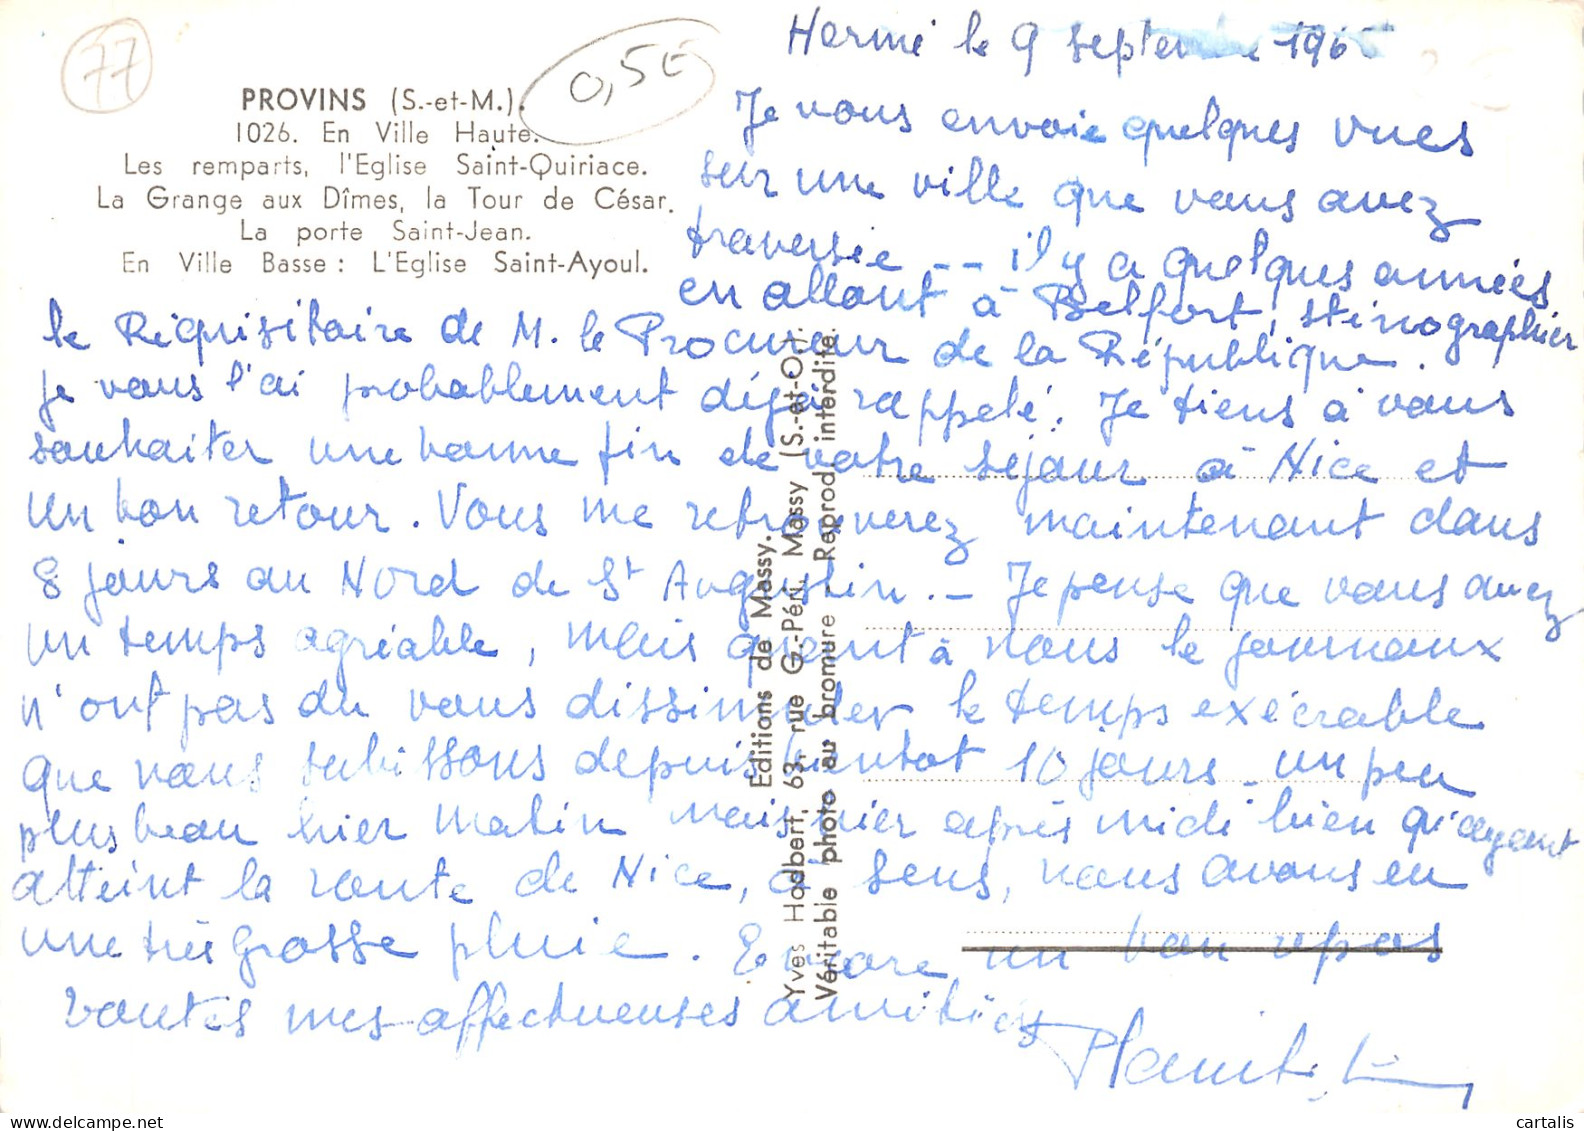 77
0,5€
PROVINS (S.-et-M.).
1026. En Ville Haute.
Les remparts, l'Eglise Saint-Quiriace.
La Grange aux Dîmes, la Tour de César.
La porte Saint-Jean.
En Ville Basse : L'Eglise Saint-Ayoul.
Hermé le 9 septembre 196
Je vous envoie quelques vues
sur une ville que vous avez
traversée -- il y a quelques années
en allant à Belfort, sténographier
le Réquisitaire de M. le Procureur de la République.
je vous l'ai probablement déjà rappelé. Je tiens à vous
souhaiter une bonne fin de votre séjour à Nice et
un bon retour. Vous me retrouverez maintenant dans
8 jours au Nord de St Augustin. - Je pense que vous avez
un temps agréable, mais quant à nous le journaux
n'ont pas du vous dissimuler le temps exécrable
que nous subissons depuis bientot 10 jours - un peu
plus beau hier matin mais hier après midi bien qu'ayant
atteint la route de Nice, à Sens, nous avons eu
une très grosse pluie. Encore un bon repos
toutes mes affectueuses amitiés
Editions de Massy.
Yves Hodbert, 63, rue G.-Péri, Massy (S.-et-O.).
Véritable photo au bromure Reprod interdite.
cartalis